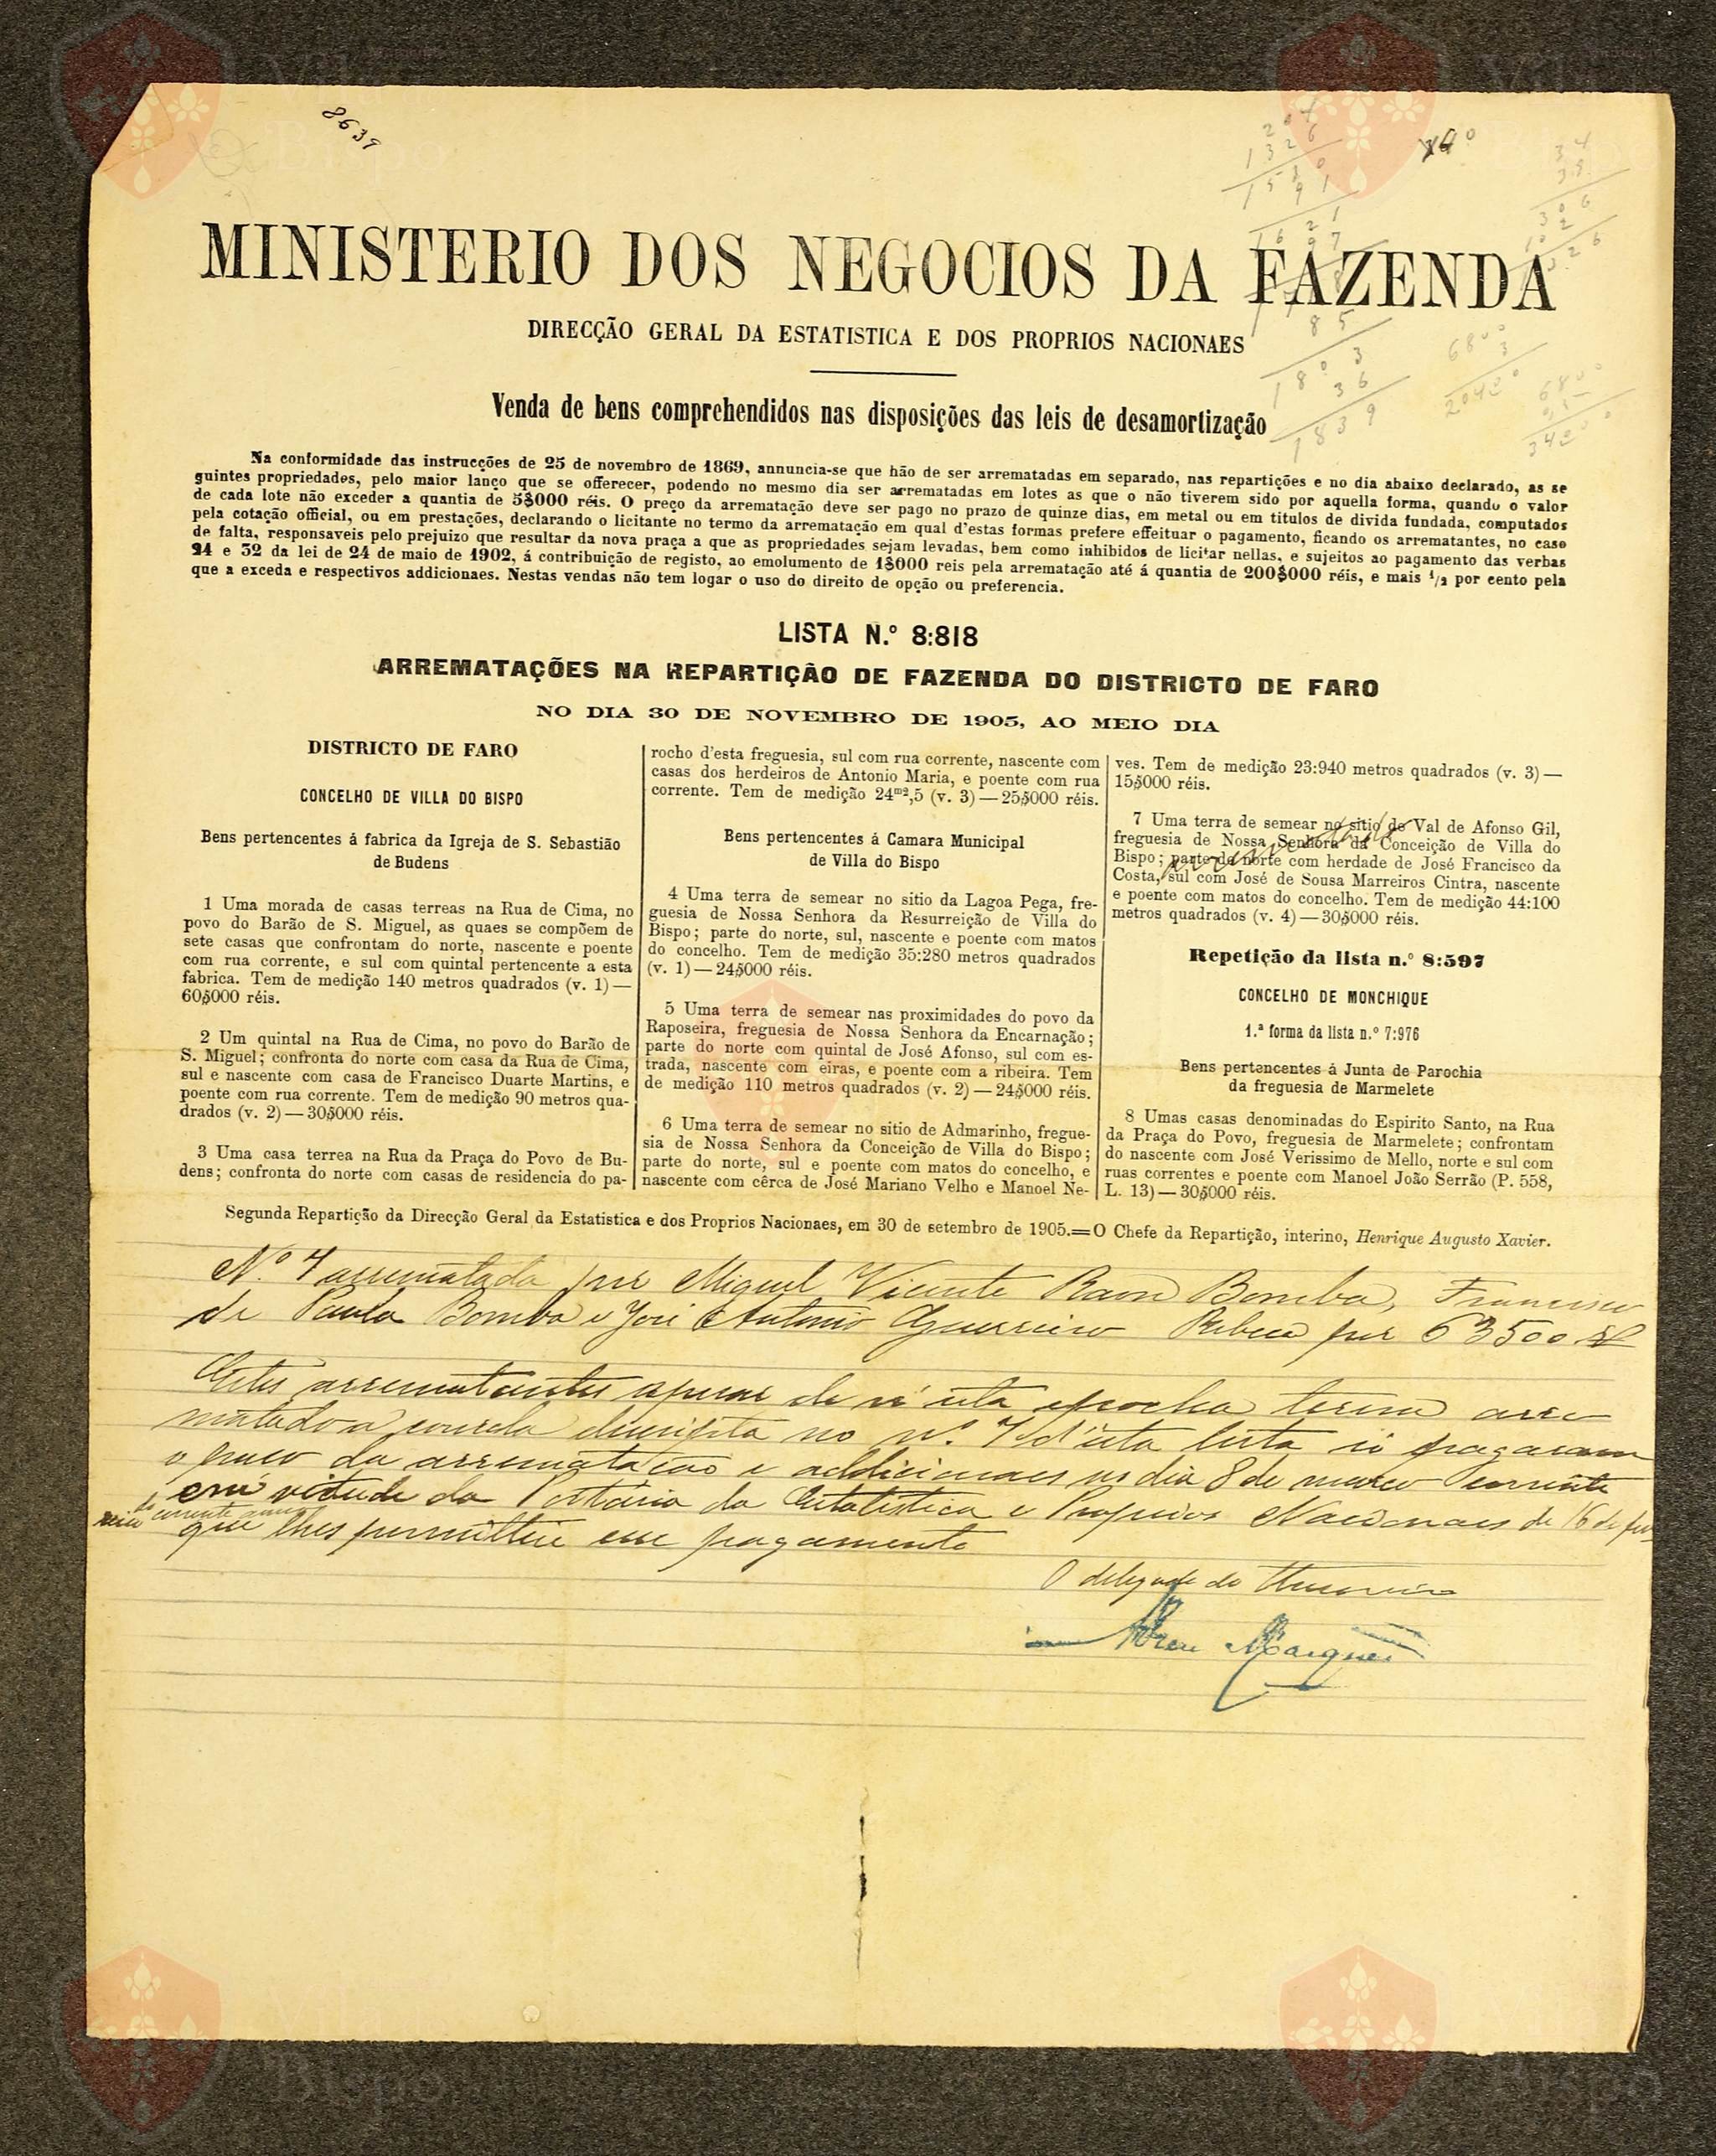 8639
MINISTERIO DOS NEGOCIOS DA FAZENDA
DIRECÇÃO GERAL DA ESTATISTICA E DOS PROPRIOS NACIONAES
Venda de bens comprehendidos nas disposições das leis de desamortização
Na conformidade das instrucções de 25 de novembro de 1869, annuncia-se que hão de ser arrematadas em separado, nas repartições e no dia abaixo declarado, as se
guintes propriedades, pelo maior lanço que se offerecer, podendo no mesmo dia ser arrematadas em lotes as que o não tiverem sido por aquella forma, quando o valor
de cada lote não exceder a quantia de 5$000 réis. O preço da arrematação deve ser pago no prazo de quinze dias, em metal ou em titulos de divida fundada, computados
pela cotação official, ou em prestações, declarando o licitante no termo da arrematação em qual d'estas formas prefere effeituar o pagamento, ficando os arrematantes, no caso
de falta, responsaveis pelo prejuizo que resultar da nova praça a que as propriedades sejam levadas, bem como inhibidos de licitar nellas, e sujeitos ao pagamento das verbas
24 e 32 da lei de 24 de maio de 1902, á contribuição de registo, ao emolumento de 1$000 reis pela arrematação até á quantia de 200$000 réis, e mais 1/2 por cento pela
que a exceda e respectivos addicionaes. Nestas vendas não tem logar o uso do direito de opção ou preferencia.
LISTA N.º 8:818
ARREMATAÇÕES NA REPARTIÇÃO DE FAZENDA DO DISTRICTO DE FARO
NO DIA 30 DE NOVEMBRO DE 1905, AO MEIO DIA
DISTRICTO DE FARO
CONCELHO DE VILLA DO BISPO
Bens pertencentes á fabrica da Igreja de S. Sebastião
de Budens
1 Uma morada de casas terreas na Rua de Cima, no
povo do Barão de S. Miguel, as quaes se compõem de
sete casas que confrontam do norte, nascente e poente
com rua corrente, e sul com quintal pertencente a esta
fabrica. Tem de medição 140 metros quadrados (v. 1) —
60$000 réis.
2 Um quintal na Rua de Cima, no povo do Barão de
S. Miguel; confronta do norte com casa da Rua de Cima,
sul e nascente com casa de Francisco Duarte Martins, e
poente com rua corrente. Tem de medição 90 metros qua-
drados (v. 2) — 30$000 réis.
3 Uma casa terrea na Rua da Praça do Povo de Bu-
dens; confronta do norte com casas de residencia do pa-
rocho d'esta freguesia, sul com rua corrente, nascente com
casas dos herdeiros de Antonio Maria, e poente com rua
corrente. Tem de medição 24m²,5 (v. 3) — 25$000 réis.
Bens pertencentes á Camara Municipal
de Villa do Bispo
4 Uma terra de semear no sitio da Lagoa Pega, fre-
guesia de Nossa Senhora da Resurreição de Villa do
Bispo; parte do norte, sul, nascente e poente com matos
do concelho. Tem de medição 35:280 metros quadrados
(v. 1) — 24$000 réis.
5 Uma terra de semear nas proximidades do povo da
Raposeira, freguesia de Nossa Senhora da Encarnação;
parte do norte com quintal de José Afonso, sul com es-
trada, nascente com eiras, e poente com a ribeira. Tem
de medição 110 metros quadrados (v. 2) — 24$000 réis.
6 Uma terra de semear no sitio de Admarinho, fregue-
sia de Nossa Senhora da Conceição de Villa do Bispo;
parte do norte, sul e poente com matos do concelho, e
nascente com cêrca de José Mariano Velho e Manoel Ne-
ves. Tem de medição 23:940 metros quadrados (v. 3) —
15$000 réis.
7 Uma terra de semear no sitio de Val de Afonso Gil,
freguesia de Nossa Senhora da Conceição de Villa do
Bispo; parte do norte com herdade de José Francisco da
Costa, sul com José de Sousa Marreiros Cintra, nascente
e poente com matos do concelho. Tem de medição 44:100
metros quadrados (v. 4) — 30$000 réis.
Repetição da lista n.º 8:597
CONCELHO DE MONCHIQUE
1.ª forma da lista n.º 7:976
Bens pertencentes á Junta de Parochia
da freguesia de Marmelete
8 Umas casas denominadas do Espirito Santo, na Rua
da Praça do Povo, freguesia de Marmelete; confrontam
do nascente com José Verissimo de Mello, norte e sul com
ruas correntes e poente com Manoel João Serrão (P. 558,
L. 13) — 30$000 réis.
Segunda Repartição da Direcção Geral da Estatistica e dos Proprios Nacionaes, em 30 de setembro de 1905.=O Chefe da Repartição, interino, Henrique Augusto Xavier.
Nº 7 arrematada por Miguel Vicente Bomba, Francisco
de Paula Bomba e José Antonio Guerreiro por 63500
Estes arrematantes apesar de n'esta epocha terem arre
matado a descripta no nº 7 d'esta lista só pagaram
o preço da arrematação e addicionaes no dia 8 de março corrente
em virtude da Portaria da Estatistica e Proprios Nacionaes de 16 de feve
reiro do corrente anno
que lhes permittiu esse pagamento
O delegado do Thesouro
Marques